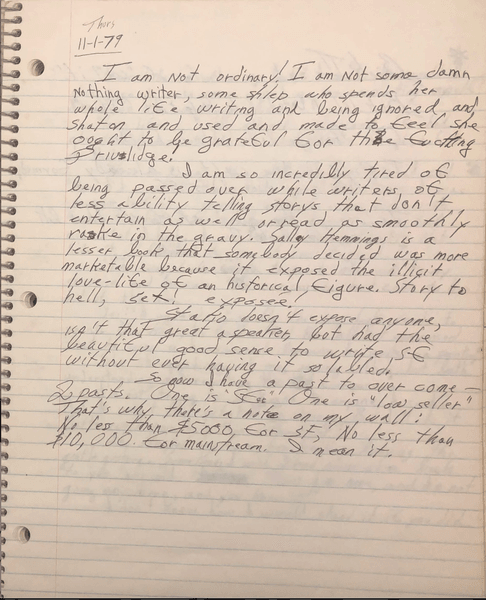 Thurs
11-1-79
I am not ordinary! I am not some damn
nothing writer, some shlep who spends her
whole life writing and being ignored and
shaton and used and made to feel she
ought to be grateful for the fucking
Priviledge.
I am so incredibly tired of
being passed over while writers, of
less ability telling storys that don't
entertain as well or read as smoothly
rake in the gravy. Sally Hemmings is a
lesser book that somebody decided was more
marketable because it exposed the illicit
love-life of an historical figure. Story to
hell, exposee!
doesn't expose anyone,
isn't that great a speaker, but had the
beautiful good sense to write SF
without ever having it so labled.
So now I have a past to over come—
2 pasts. One is "One is "low seller"
That's why there's a note on my wall:
No less than $5000 for SF, No less than
$10,000 for mainstream. I mean it.